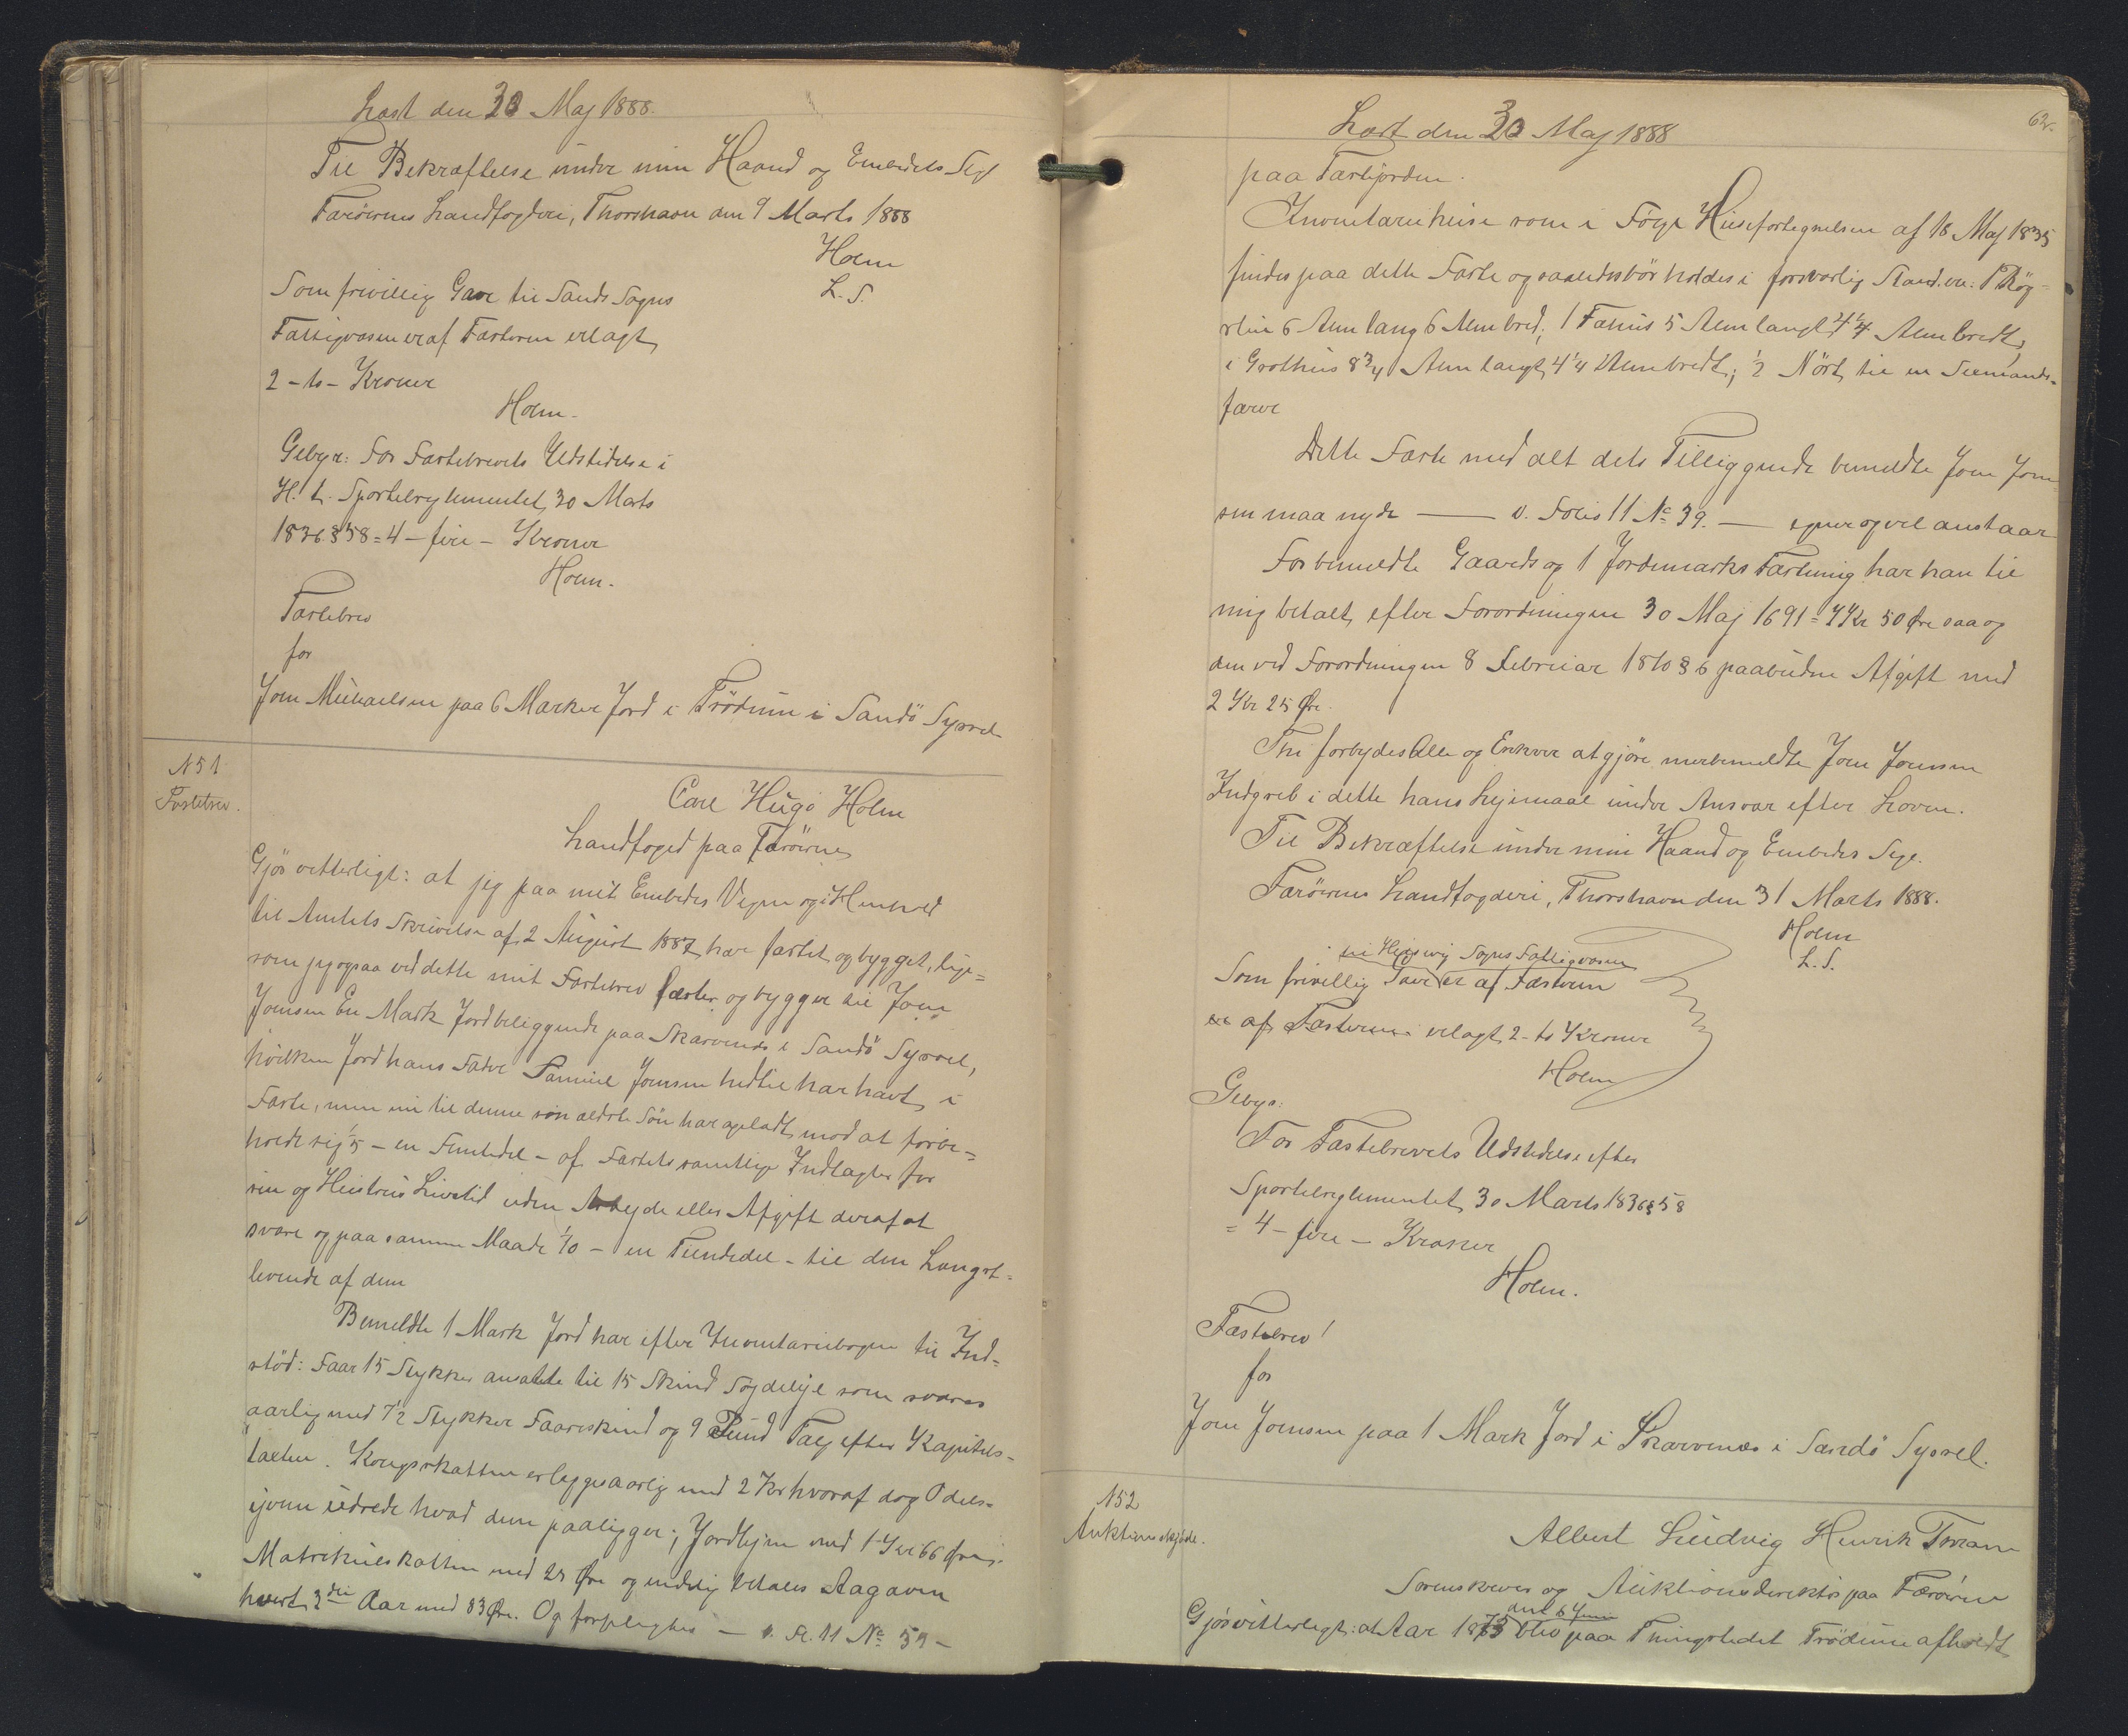 Læst den 30 Maj 1888.
Til Bekræftelse under min Haand og Embedets Segl
Færöernes Landfogderi, Thorshavn den 9 Marts 1888
Holm
L. S.
Som frivillig Gave til Sands Sogns
Fattigvæsen er af Fæsteren erlagt
2 - to - Kroner
Holm.
Gebyr: For Fæstebrevets Udstedelse i
H. t. Sportelreglementet 30 Marts
1836 § 58 = 4 - fire - Kroner
Holm.
Fæstebrev
for
Joen Michaelsen paa 6 Marker Jord i Trödum i Sandö Syssel
N 51
Fæstebrev.
Carl Hugo Holm
Landfoged paa Færöerne
Gjör vitterligt: at jeg paa mit Embedes Vegne og i Henhold
til Amtets Skrivelse af 2 August 1887 har fæstet og bygget, lige=
som jeg ogsaa ved dette mit Fæstebrev fæster og bygger til Joen
Joensen En Mark Jord beliggende paa Skarvenæs i Sandö Syssel,
hvilken Jord hans Fader Samuel Joensen hidtil har havt i
Fæste, men nu til denne sin ældste Sön har opladt mod at forbe=
holde sig 1/5 - en Femtedel - af Fæstets samtlige Indtægter for
sin og Hustrus Livstid uden Arbejde eller Afgift deraf at
svare og paa samme Maade 1/10 - en Tiendedel - til den Længst=
levende af dem
Bemeldte 1 Mark Jord har efter Inventariebogen til Ind=
stöd: Faar 15 Stykker ansatte til 15 Skind Söydeleje som svares
aarlig med 7 1/2 Stykker Faareskind og 9 Pund Talg efter Kapitels=
taxten. Kongsskatten erlægges aarlig med 2 Kr hvoraf dog Odels=
ejerne udrede hvad dem paaligger; Jordlejen med 1 Kr 66 Öre;
Matrikulskatten med 25 Öre og endelig betales Aagaven
hvert 3die Aar med 83 Öre. Og forpligtes — v. Fol. 11 № 39 —
Læst den 30 Maj 1888
62.
paa Fæstejorden.
Inventariehuse som i Fölge Husefortegnelsen af 18 Maj 1835
findes paa dette Fæste og saaledes bör holdes i forsvarlig Stand ere: 1 Rög=
stue 6 Alen lang 6 Alen bred; 1 Fæhus 5 Alen langt 4 1/4 Alen bredt,
1 Grothus 8 3/4 Alen langt, 4 1/4 Alen bredt; 1/2 Nöst til en Sexmands=
farer
Dette Fæste med alt dets Tilliggende bemeldte Joen Joen
sen maa nyde — v. Folio 11 № 39. — egner og vel anstaar
For bemeldte Gaards og 1 Jordemarks Fæstning har han til
mig betalt, efter Forordningen 30 Maj 1691 = 4 Kr 50 Öre saa og
den ved Forordningen 8 Februar 1810 § 6 paabudne Afgift med
2 Kr 25 Öre.
Thi forbydes Alle og Enhver at gjöre merbemeldte Joen Joensen
Indgreb i dette hans Lejemaal under Ansvar efter Loven.
Til Bekræftelse under min Haand og Embedes Segl.
Færöernes Landfogderi, Thorshavn den 31 Marts 1888.
Holm
L. S.
til Husevig Sogns Fattigvæsen
Som frivillig Gave er af Fæsteren
er af Fæsteren erlagt 2 - to Kroner
Holm
Gebyr:
For Fæstebrevets Udstedelse efter
Sportelreglementet 30 Marts 1836 § 58
= 4 - fire - Kroner
Holm.
Fæstebrev!
for
Joen Joensen paa 1 Mark Jord i Skarvenæs i Sandö Syssel.
N 52
Auktionsskjöde.
Albert Ludvig Henrik
Sorenskriver og Auktionsdirektör paa Færöerne
den 6 Juni
Gjör vitterligt: at Aar 1873 blev paa Thingstedet Trödum afholdt